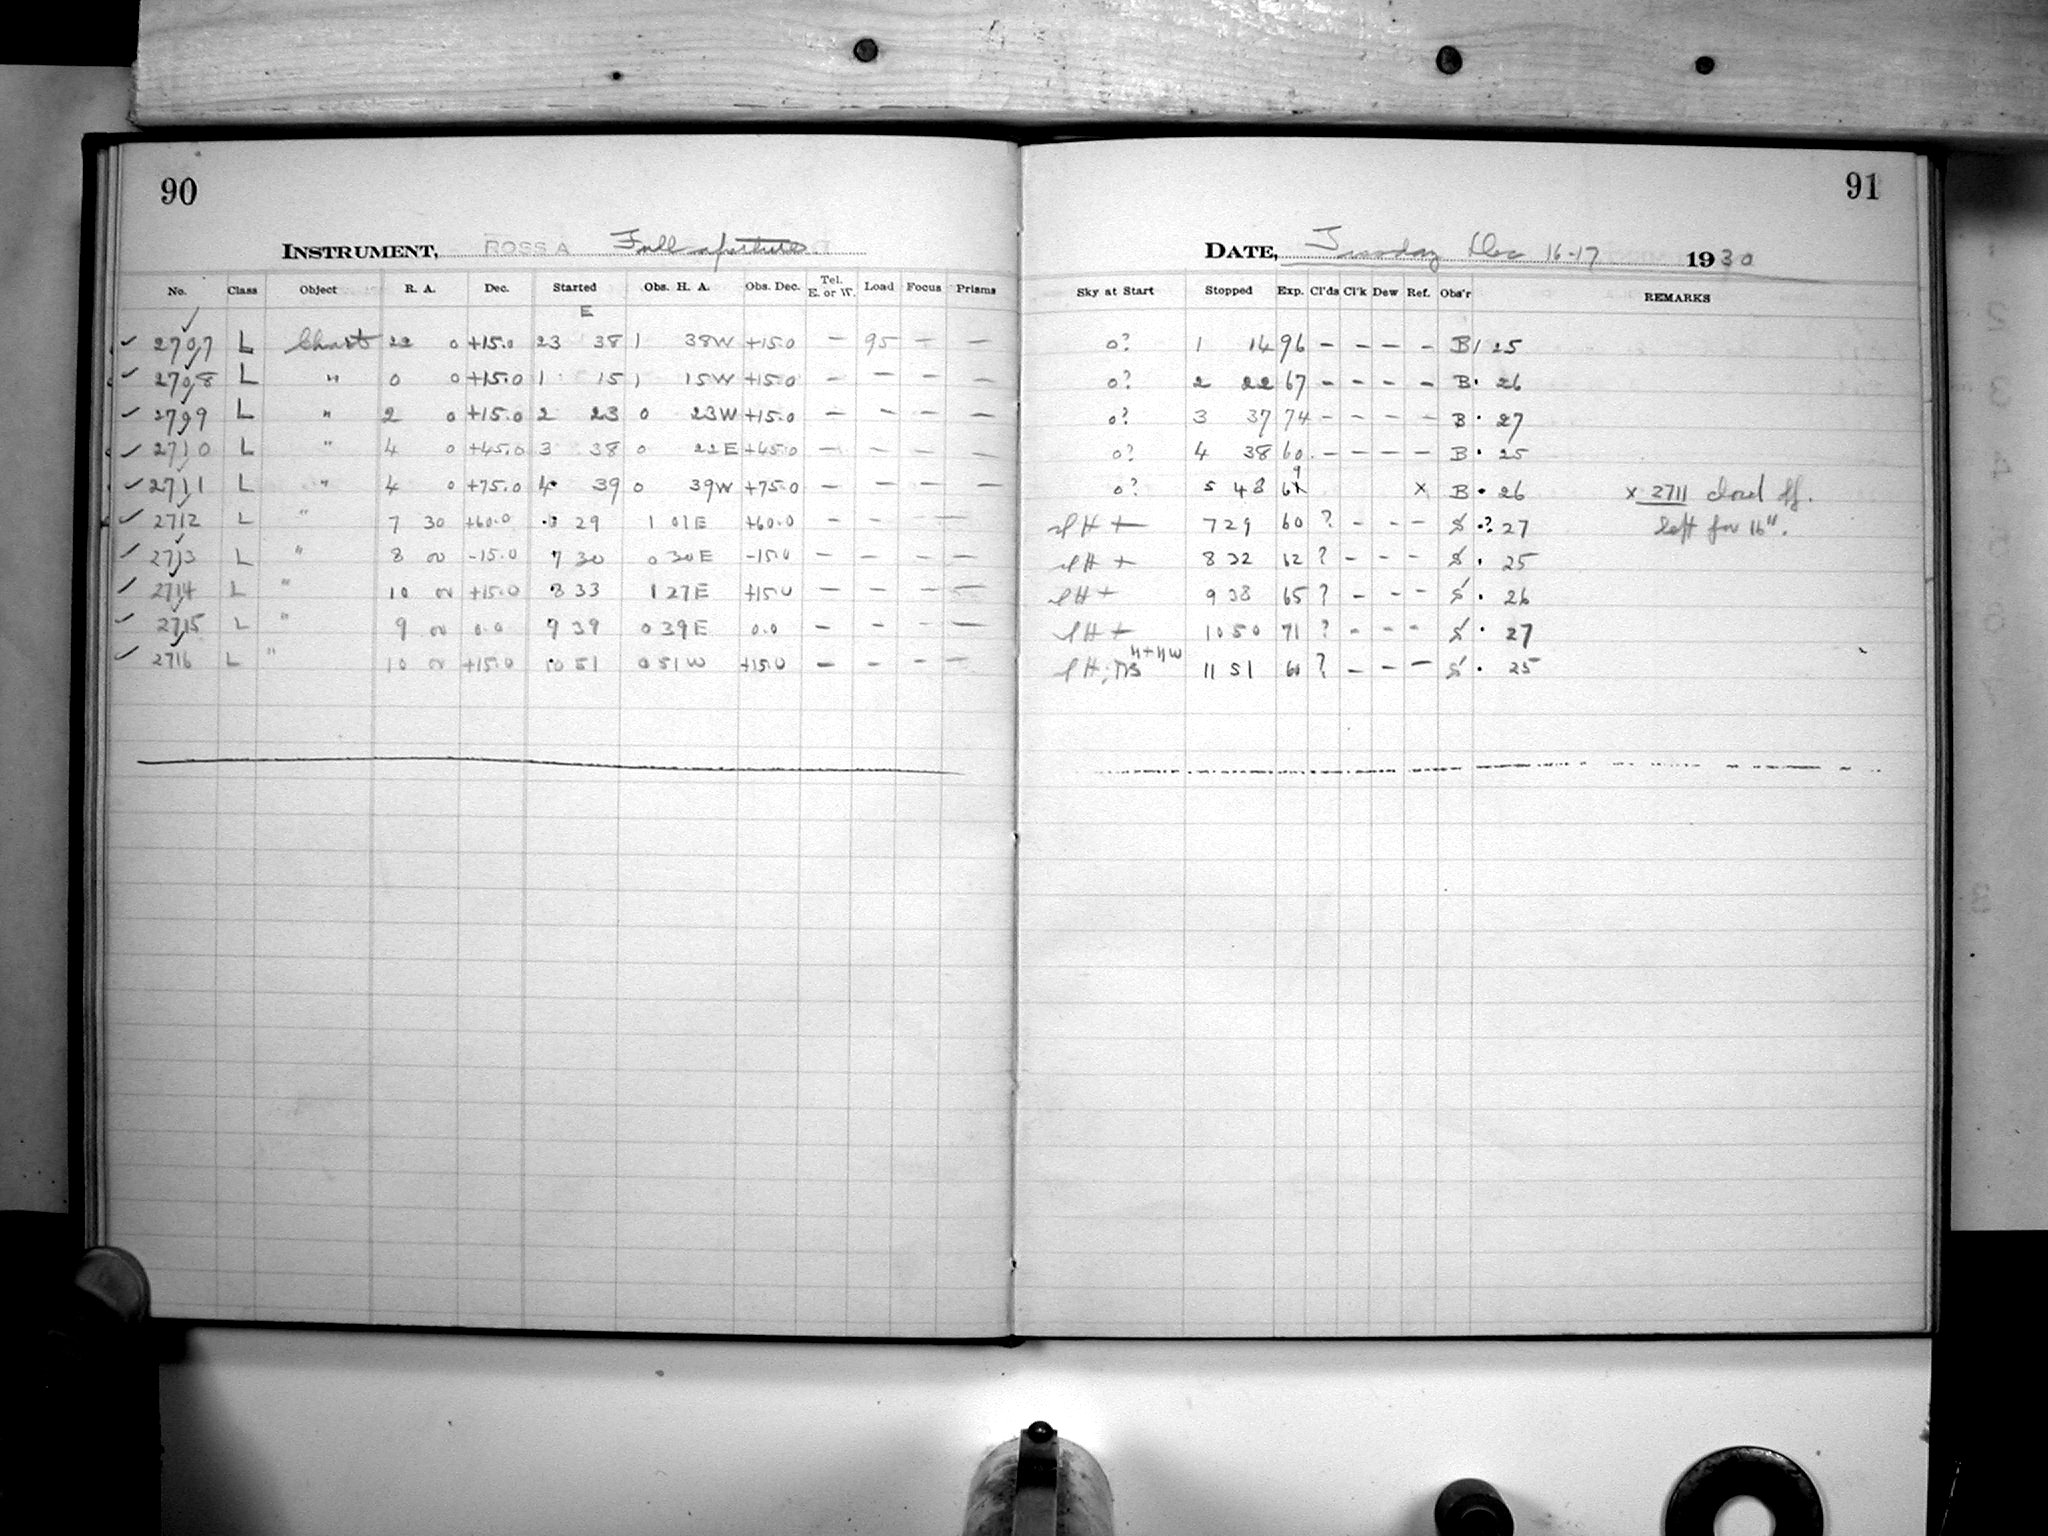 90
INSTRUMENT, ROSS A Full aperture
No. Class Object R. A. Dec. Started Obs. H. A. Obs. Dec. Tel. E. or W. Load Focus Prisms
E
✓ 2707 L Chart 22 0 +15.0 23 38 1 38W +15.0 — 95 + —
✓ 2708 L " 0 0 +15.0 1 15 1 15W +15.0 — — — —
✓ 2709 L " 2 0 +15.0 2 23 0 23W +15.0 — — — —
✓ 2710 L " 4 0 +45.0 3 38 0 22E +45.0 — — — —
✓ 2711 L " 4 0 +75.0 4 39 0 39W +75.0 — — — —
✓ 2712 L " 7 30 +60.0 29 1 01E +60.0 — — — —
✓ 2713 L " 8 00 -15.0 7 30 0 30E -15.0 — — — —
✓ 2714 L " 10 00 +15.0 8 33 1 27E +15.0 — — — —
✓ 2715 L " 9 00 0.0 9 39 0 39E 0.0 — — — —
✓ 2716 L " 10 00 +15.0 10 51 0 51W +15.0 — — — —
91
DATE, Tuesday Dec 16-17 1930
Sky at Start Stopped Exp. Cl'ds Cl'k Dew Ref. Obs'r REMARKS
0? 1 14 96 — — — — B 1 25
0? 2 22 67 — — — — B · 26
0? 3 37 74 — — — — B · 27
0? 4 38 60 — — — — B · 25
0? 5 48 69 x B · 26 x 2711 closed off.
H + 7 29 60 ? — — — S ·? 27 left for 16".
H + 8 32 62 ? — — — S · 25
H + 9 38 65 ? — — — S · 26
H + 10 50 71 ? — — — S · 27
H; 11 51 60 ? — — — S · 25